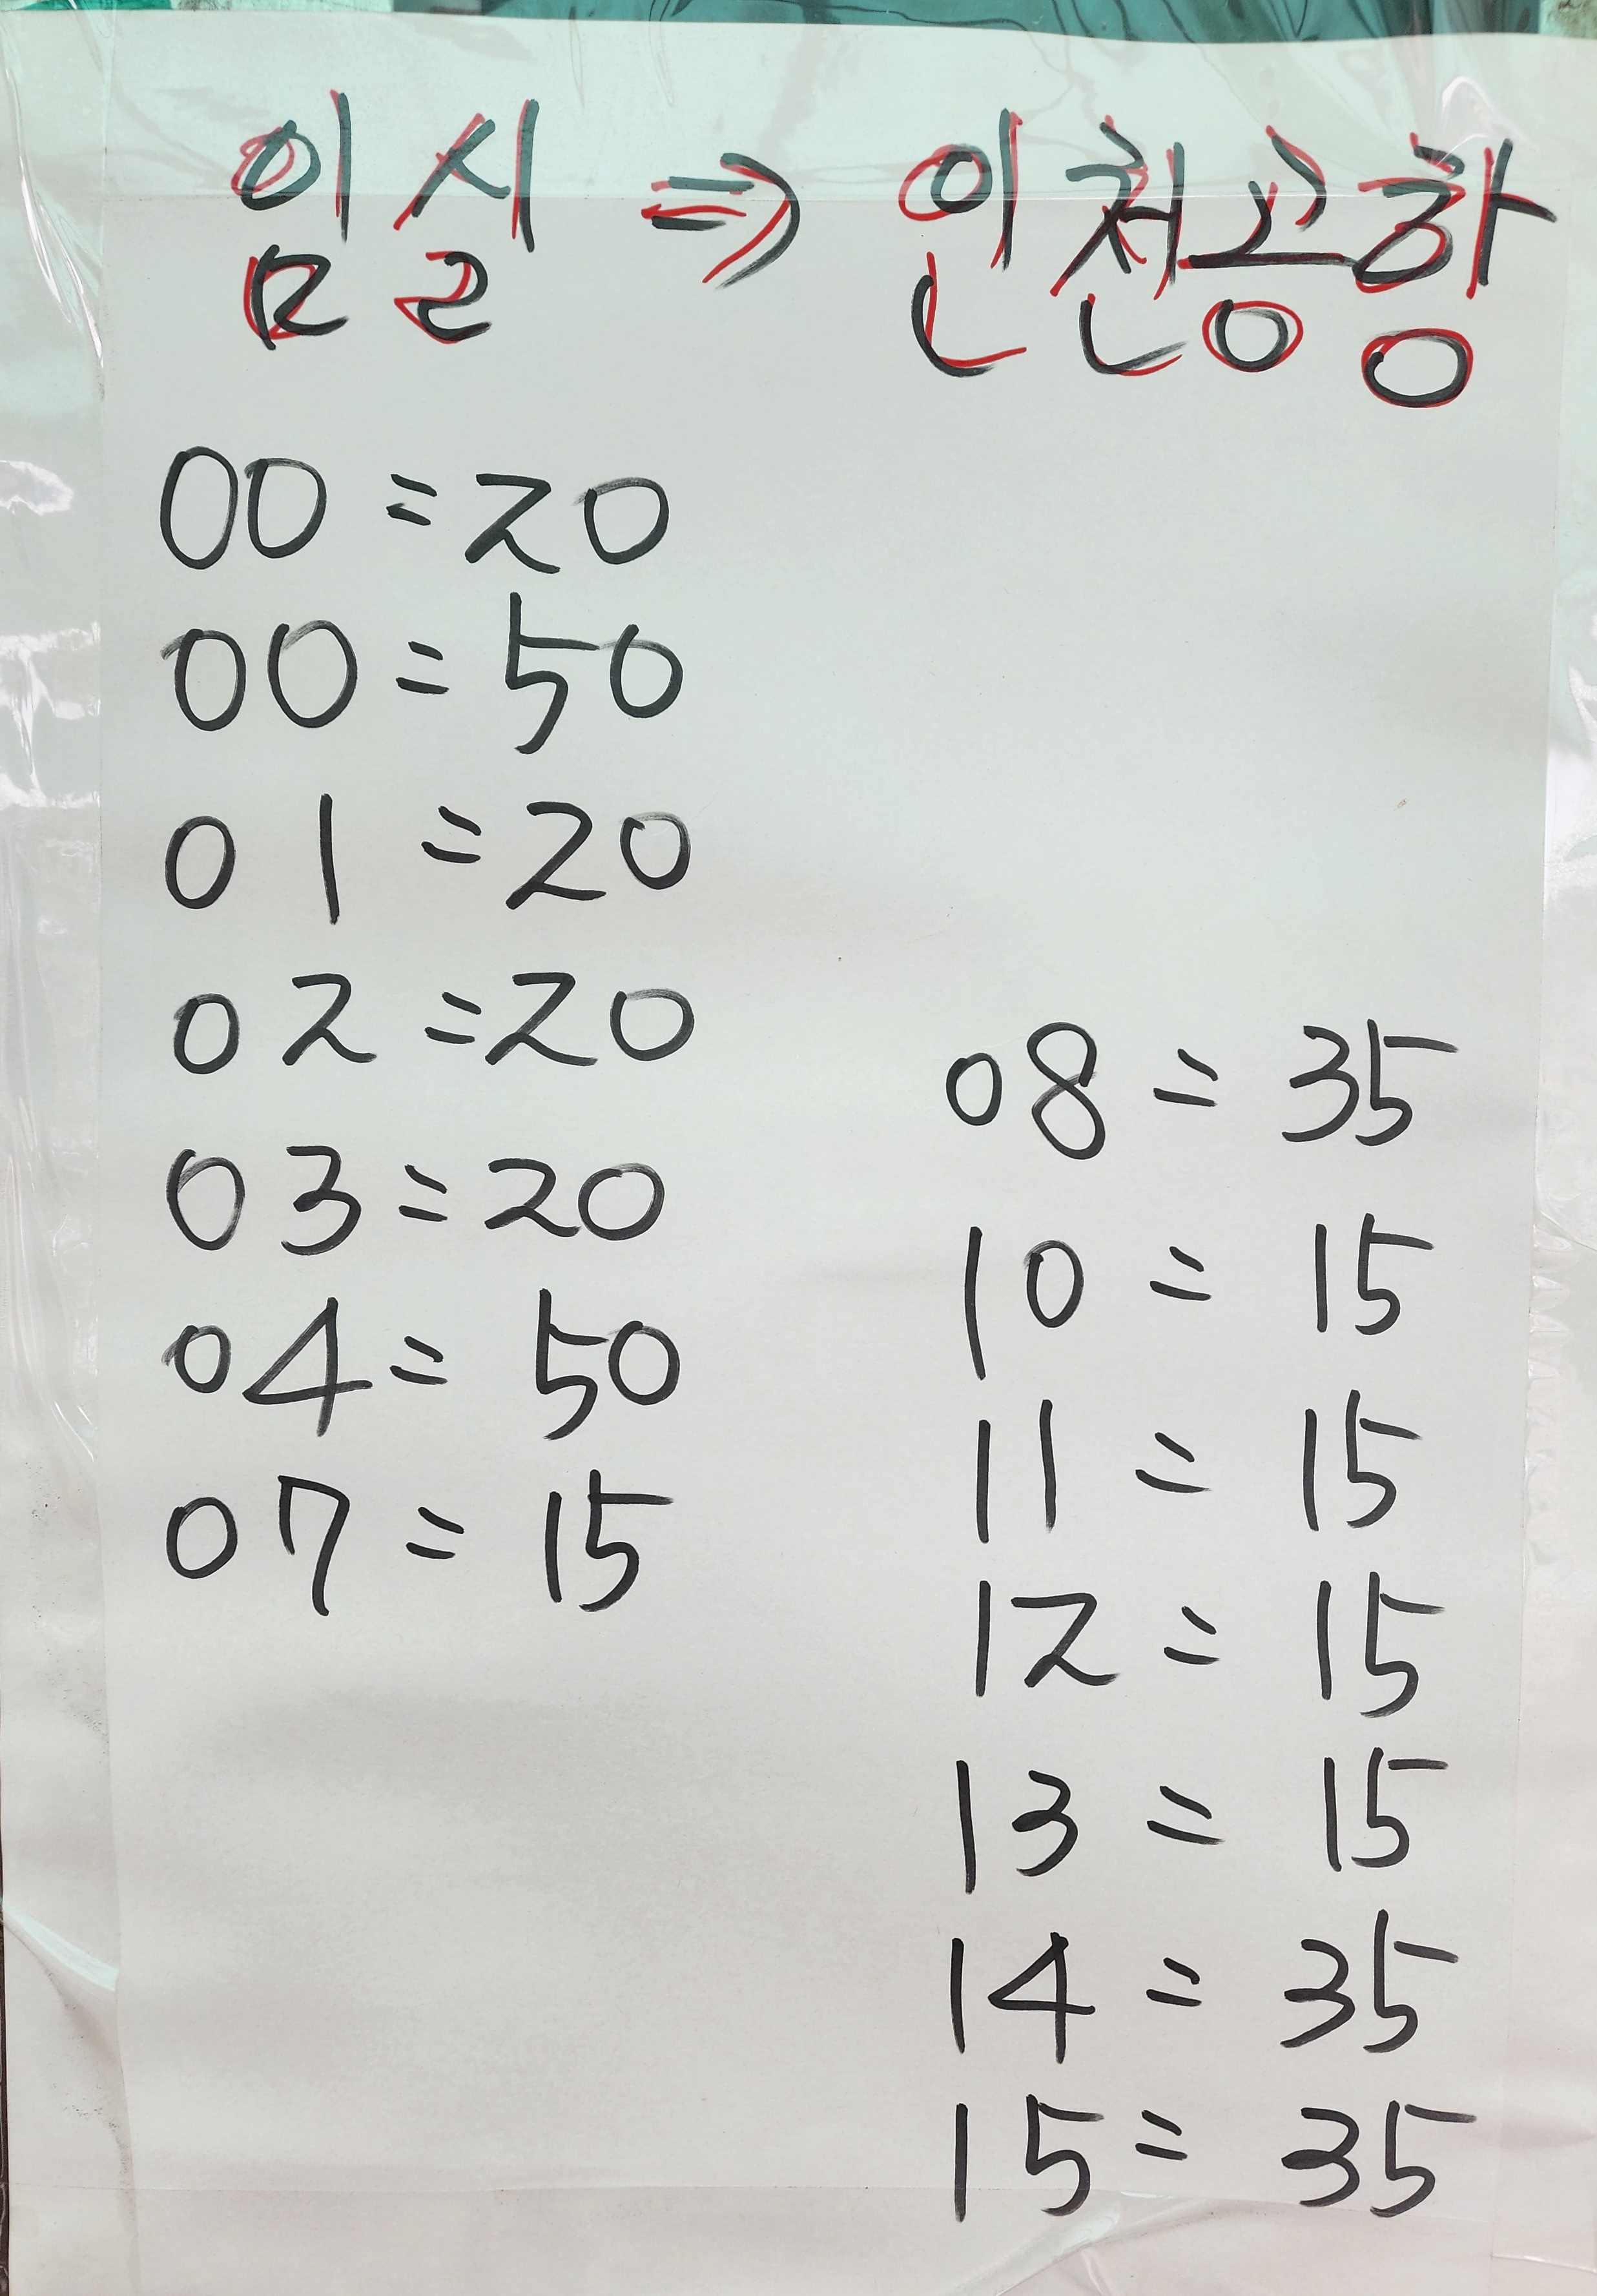 임실 ⇒ 인천공항
00 = 20
00 = 50
01 = 20
02 = 20
03 = 20
04 = 50
07 = 15
08 = 35
10 = 15
11 = 15
12 = 15
13 = 15
14 = 35
15 = 35